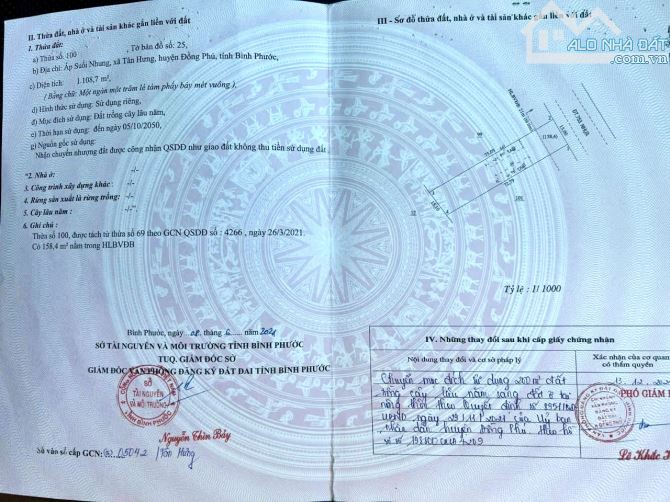 II. Thửa đất, nhà ở và tài sản khác gắn liền với đất
1. Thửa đất:
a) Thửa số: 100 , Tờ bản đồ số: 25,
b) Địa chỉ: Ấp Suối Nhung, xã Tân Hưng, huyện Đồng Phú, tỉnh Bình Phước,
c) Diện tích: 1.108,7 m²,
( Bằng chữ: Một ngàn một trăm lẻ tám phẩy bảy mét vuông )
d) Hình thức sử dụng: Sử dụng riêng,
đ) Mục đích sử dụng: Đất trồng cây lâu năm,
e) Thời hạn sử dụng: đến ngày 05/10/2050,
g) Nguồn gốc sử dụng:
Nhận chuyển nhượng đất được công nhận QSDĐ như giao đất không thu tiền sử dụng đất .
*2. Nhà ở: -/-
3. Công trình xây dựng khác: -/-
4. Rừng sản xuất là rừng trồng: -/-
5. Cây lâu năm: -/-
6. Ghi chú :
Thửa số 100, được tách từ thửa số 69 theo GCN QSDĐ số : 4266 , ngày 26/3/2021.
Có 158,4 m² nằm trong HLBVĐB
Bình Phước, ngày 08 tháng 6 năm 2021
SỞ TÀI NGUYÊN VÀ MÔI TRƯỜNG TỈNH BÌNH PHƯỚC
TUQ. GIÁM ĐỐC SỞ
GIÁM ĐỐC VĂN PHÒNG ĐĂNG KÝ ĐẤT ĐAI TỈNH BÌNH PHƯỚC
SỞ
TÀI NGUYÊN
VÀ MÔI TRƯỜNG
TỈNH BÌNH PHƯỚC
Nguyễn Thìn Bảy
Số vào sổ cấp GCN: 05042 / Tân Hưng
III - Sơ đồ thửa đất, nhà ở và tài sản khác gắn liền với đất
ALO NHÀ ĐẤT
.com.vn
HLBVĐB
ĐT 753 NHỰA
99
(158,4)
101
Tỷ lệ : 1/ 1000
IV. Những thay đổi sau khi cấp giấy chứng nhận
Nội dung thay đổi và cơ sở pháp lý
Xác nhận của cơ quan
có thẩm quyền
Chuyển mục đích sử dụng 200 m² đất
trồng cây lâu năm sang đất ở tại
nông thôn theo Quyết định số
UBND ngày 29/11/2021 của Uỷ ban
nhân dân huyện Đồng Phú. Theo hồ
sơ số
PHÓ GIÁM
Lê Khắc